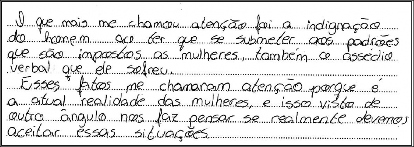 O que mais me chamou atenção foi a indignação
do homem ao ter que se submeter aos padrões
que são impostos as mulheres, também o assédio
verbal que ele sofreu.
Esses fatos me chamaram atenção porque é
a atual realidade das mulheres, e isso visto de
outro ângulo nos faz pensar se realmente devemos
aceitar essas situações.